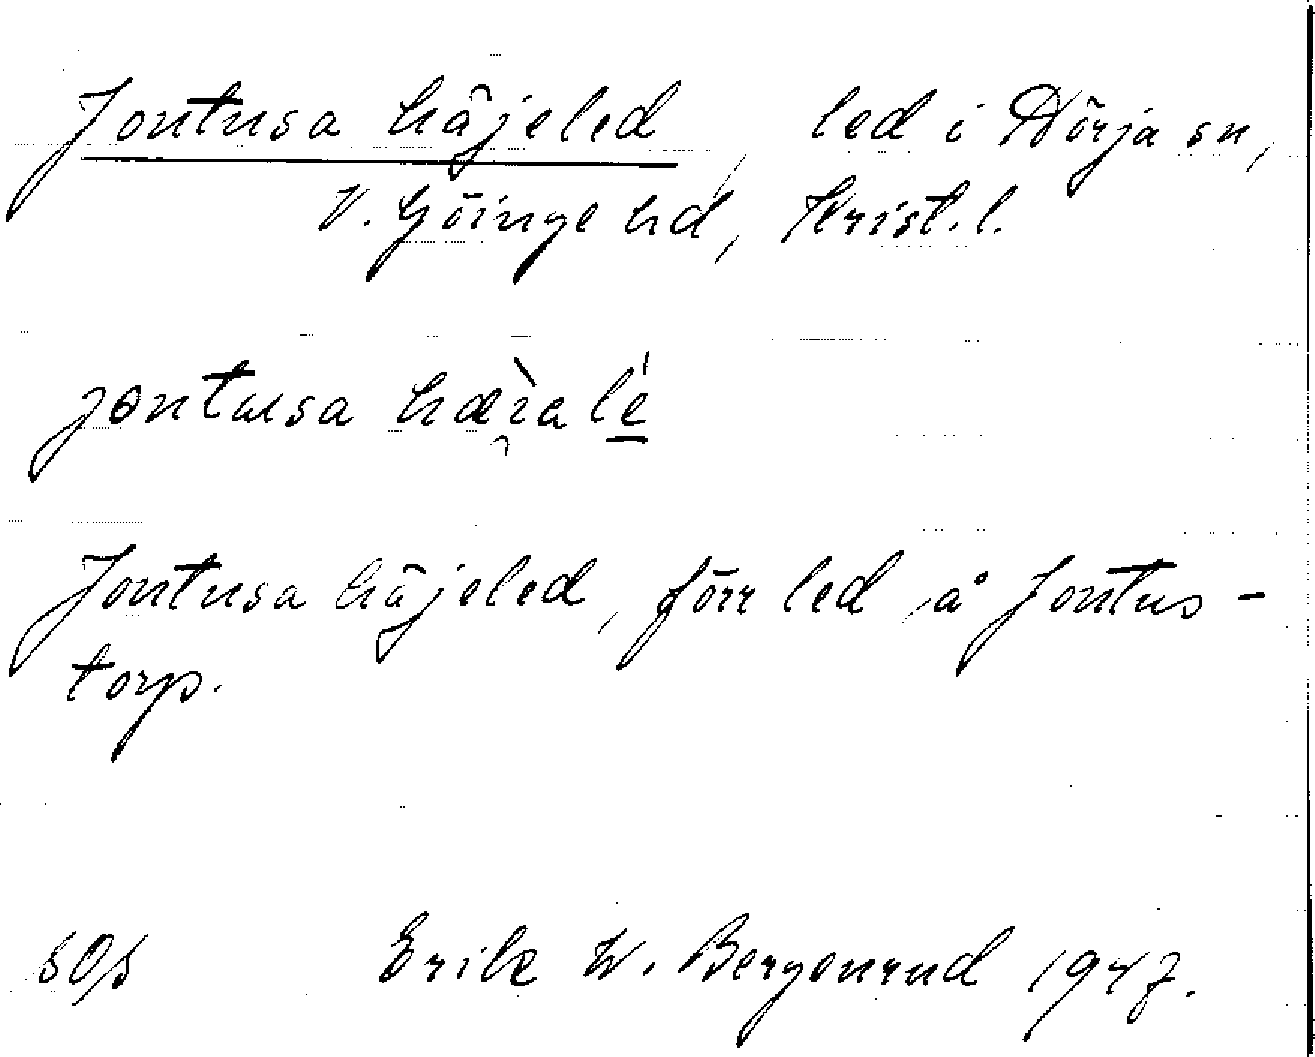 Jontusa häjeled, led i Nörja sn,
V. Göinge hd, Krist. l.
jontusa hæ̀ialé
Jontusa häjeled, förr led å Jontus-
torp.
Erik W. Bergenrud 1947.